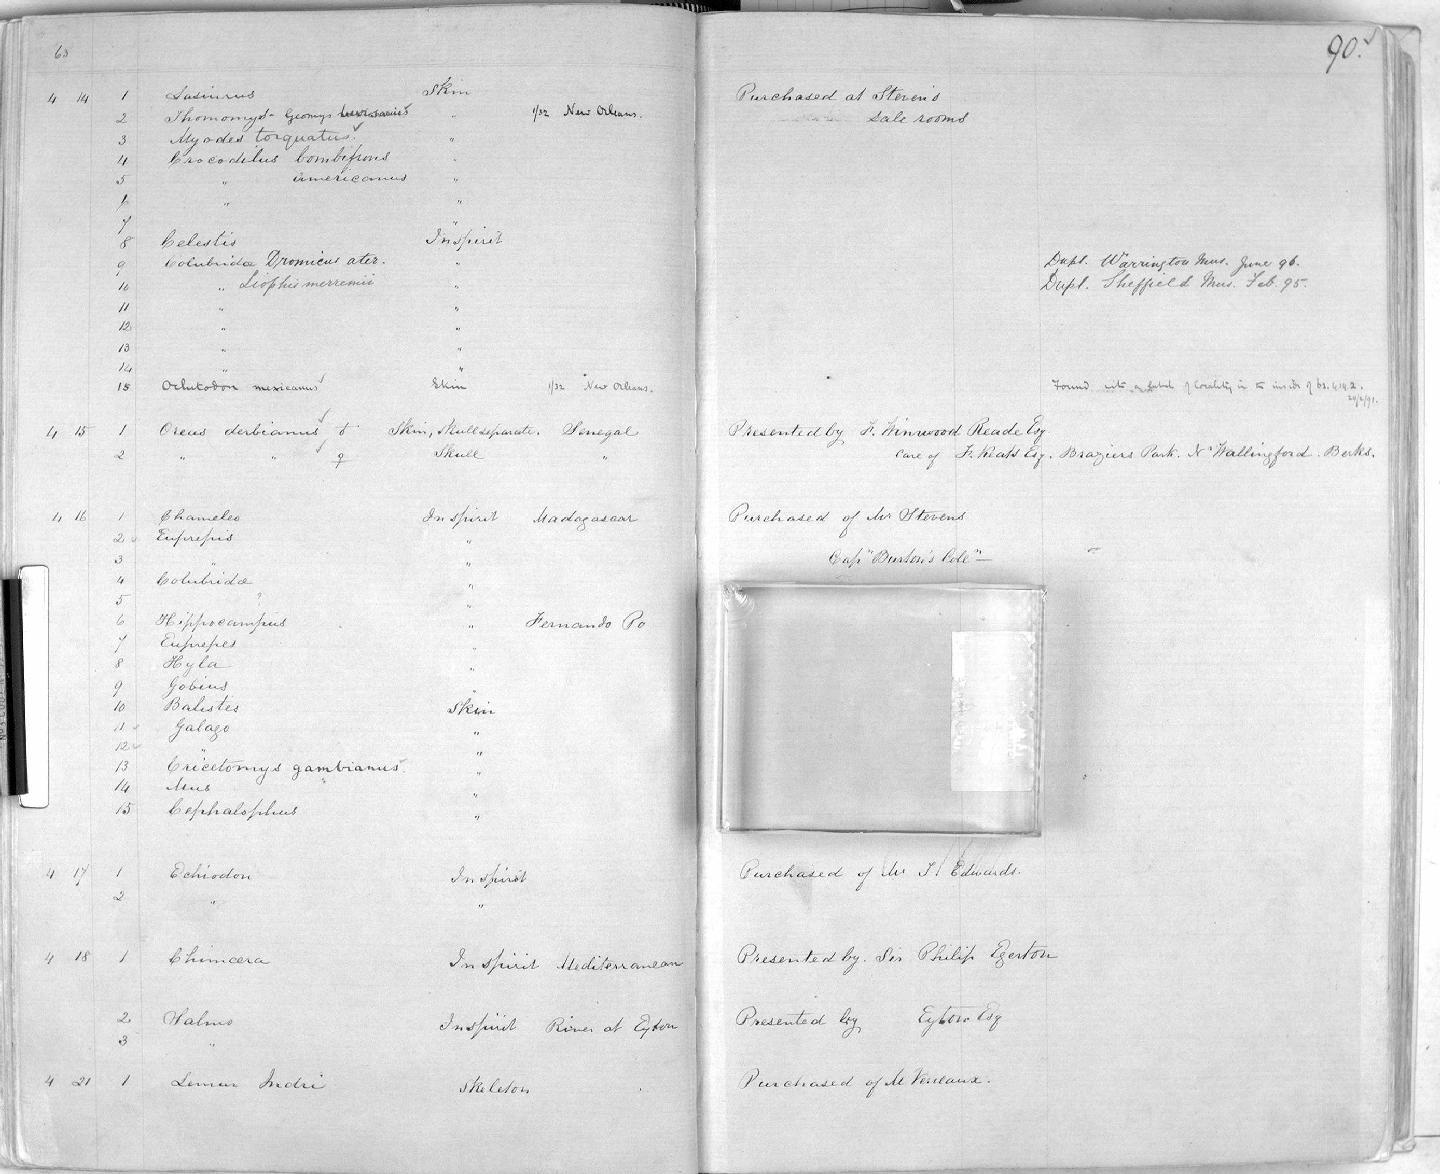 63
90.
4 14 1 Lasiurus Skin Purchased at Steven's
2 Thomomys - Geomys bursarius " 1/32 New Orleans. Sale rooms
3 Myodes torquatus "
4 Crocodilus bombifrons "
5 " americanus "
6 " "
7 "
8 Celestis In spirit
9 Colubridæ Dromicus ater. " Dupl. Warrington Mus. June 96.
10 " Liophis merremii " Dupl. Sheffield Mus. Feb. 95.
11 " "
12 " "
13 " "
14 " "
15 Ochetodon mexicanus Skin 1/32 New Orleans. Found with a label of locality in the inside of 63.4.14.2.
24/2/91.
4 15 1 Oreas derbianus ♂ Skin, Skull separate. Senegal Presented by F. Winwood Reade Esq
2 " " ♀ Skull " Care of F. Keats Esq. Braziers Park. Nr Wallingford. Berks.
4 16 1 Chameleo In spirit Madagascar Purchased of Mr Stevens
2 Euprepis "
3 " " Capn Burton's Coll" —
4 Colubridæ "
5 " "
6 Hippocampus " Fernando Po
7 Euprepes "
8 Hyla "
9 Gobius "
10 Balistes Skin
11 Galago "
12 " "
13 Cricetomys gambianus "
14 Mus " "
15 Cephalophus "
4 17 1 Echiodon In spirit Purchased of Mr T Edwards.
2 " "
4 18 1 Chimæra In spirit Mediterranean Presented by. Sir Philip Egerton
2 Salmo In spirit River at Eyton Presented by Eyton Esq
3 "
4 21 1 Lemur Indri Skeleton Purchased of M Verreaux.